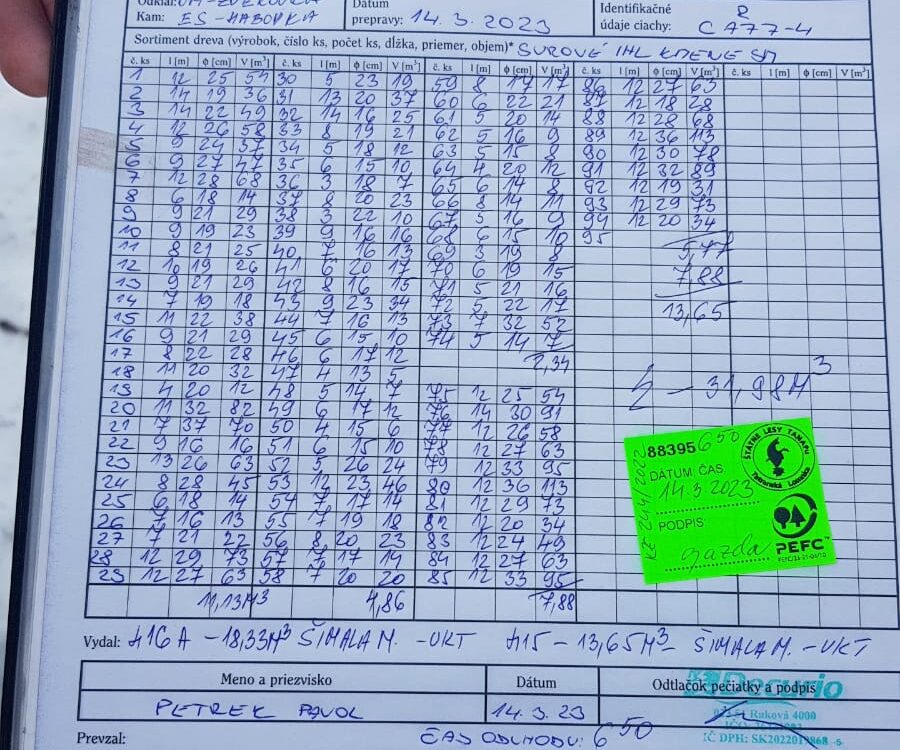 Dátum
Identifikačné
Kam: ES-HABOVKA
prepravy: 14.3.2023
údaje ciachy: CA77-4
Sortiment dreva (výrobok, číslo ks, počet ks, dĺžka, priemer, objem)* SUROVÉ IHL KMENE SM
č. ks l [m] ϕ [cm] V [m³] č. ks l [m] ϕ [cm] V [m³] č. ks l [m] ϕ [cm] V [m³] č. ks l [m] ϕ [cm] V [m³] č. ks l [m] ϕ [cm] V [m³]
1 12 25 54 30 5 23 19 59 8 17 17 86 12 27 63
2 14 19 36 31 13 20 37 60 6 22 21 87 12 18 28
3 14 22 49 32 14 16 25 61 5 20 14 88 12 28 68
4 12 26 58 33 8 19 21 62 5 16 9 89 12 36 113
5 9 24 37 34 5 18 12 63 5 15 8 90 12 30 78
6 9 27 47 35 6 15 10 64 4 20 12 91 12 32 89
7 12 28 68 36 3 18 7 65 6 14 8 92 12 19 31
8 6 18 14 37 8 20 23 66 8 14 11 93 12 29 73
9 9 21 29 38 3 22 10 67 5 16 9 94 12 20 34
10 9 19 23 39 9 16 16 68 6 15 10 95
11 8 21 25 40 7 16 13 69 3 19 8
12 10 19 26 41 6 20 17 70 6 19 15 7,88
13 9 21 29 42 8 16 15 71 5 21 16
14 7 19 18 43 9 23 34 72 5 22 17 13,65
15 11 22 38 44 7 16 13 73 7 32 52
16 9 21 29 45 6 15 10 74 5 14 7
17 8 22 28 46 6 17 12 2,34
18 11 20 32 47 4 13 5
19 4 20 12 48 5 14 7 75 12 25 54
20 11 32 82 49 6 17 12 76 14 30 91
21 7 37 70 50 4 15 6 77 12 26 58
22 9 16 16 51 6 15 10 78 12 27 63
23 13 26 63 52 5 26 24 79 12 33 95
24 8 28 45 53 12 23 46 80 12 36 113
25 6 18 14 54 7 17 14 81 12 29 73
26 7 16 13 55 7 19 18 82 12 20 34
27 7 21 22 56 8 20 23 83 12 24 49
28 12 29 73 57 7 17 14 84 12 27 63
29 12 27 63 58 7 20 20 85 12 33 95
11,13M³ 4,86 7,88
- 31,98M³
88395 650
ŠTÁTNE LESY TANAPU
Tatranská Lomnica
DÁTUM ČAS
14.3.2023
PODPIS
gazda
PEFC™
Vydal: 416A - 18,33M³ ŠIMALA M. - UKT 415 - 13,65M³ ŠIMALA M. - UKT
Meno a priezvisko Dátum Odtlačok pečiatky a podpis
PETREK PAVOL 14.3.23
Decurio
Raková 4000
IČ DPH: SK2022019868
Prevzal: ČAS ODCHODU: 6 50